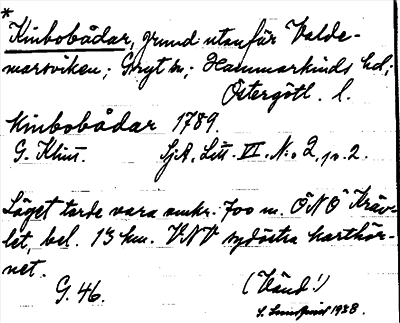 *
Kinbobådar, grund utanför Valde-
marsviken; Gryt sn; Hammarkinds hd;
Östergötl. l.
Kinbobådar 1789.
G. Klint. SjA, Litt. VI. N:o 2, p. 2.
Läget torde vara omkr. 700 m. ÖNÖ Kräv-
let, bel. 13 km. VNV sydöstra karthör-
net.
G. 46. (Vänd!)
S. Lundqvist 1938.